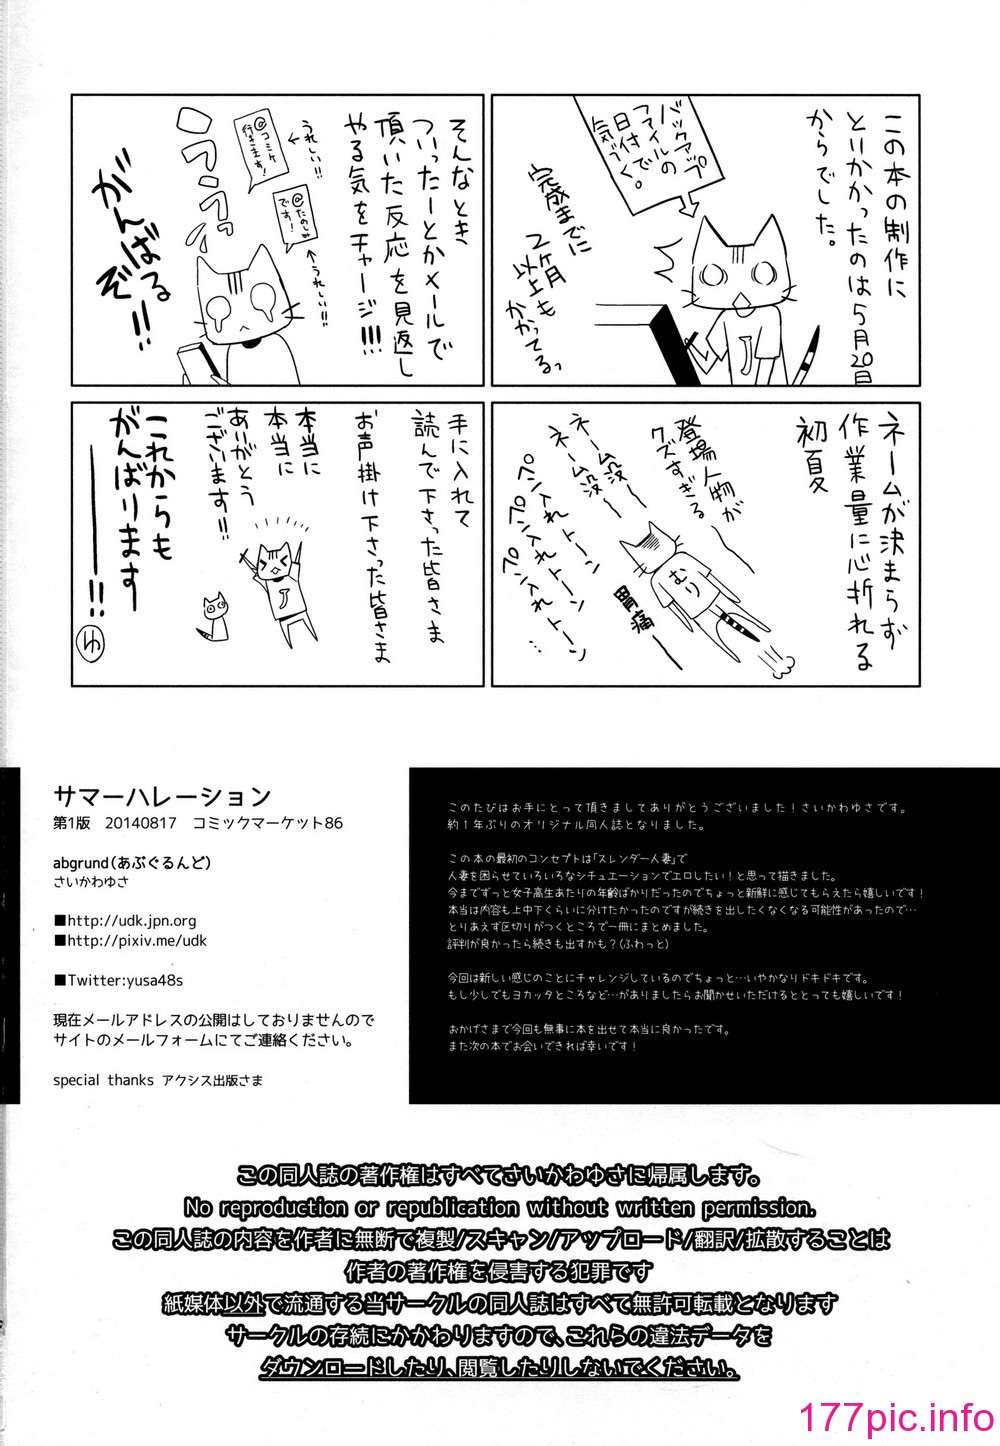 この本の制作に
とりかかったのは5月20日
からでした。
バックアップ
ファイルの
日付で
気づく。
完成までに
2ヶ月
以上も
かかってるっ
そんなとき
ついったーとかメールで
頂いた反応を見返し
やる気をチャージ!!!
うれしい!!
@コミケ
行きます!
@たのしみ
です!
うれしい!!
がんばる
ぞ!!
ネームが決まらず
作業量に心折れる
初夏
登場人物が
クズすぎる
ネーム没〜
ネーム没〜
ペン入れトーン
ペン入れトーン
ペン入れトーン…
むり
胃痛〜
手に入れて
読んで下さった皆さま
お声掛け下さった皆さま
本当に
本当に
ありがとう
ございます!!
これからも
がんばります
――!!
ゆ
サマーハレーション
第1版 20140817 コミックマーケット86
abgrund(あぶぐるんど)
さいかわゆさ
■http://udk.jpn.org
■http://pixiv.me/udk
■Twitter:yusa48s
現在メールアドレスの公開はしておりませんので
サイトのメールフォームにてご連絡ください。
special thanks アクシス出版さま
このたびはお手にとって頂きましてありがとうございました!さいかわゆさです。
約1年ぶりのオリジナル同人誌となりました。
この本の最初のコンセプトは「スレンダー人妻」で
人妻を困らせていろいろなシチュエーションでエロしたい!と思って描きました。
今までずっと女子高生あたりの年齢ばかりだったのでちょっと新鮮に感じてもらえたら嬉しいです!
本当は内容も上中下くらいに分けたかったのですが続きを出したくなくなる可能性があったので…
とりあえず区切りがつくところで一冊にまとめました。
評判が良かったら続きも出すかも?(ふわっと)
今回は新しい感じのことにチャレンジしているのでちょっと…いやかなりドキドキです。
もし少しでもヨカッタところなど…がありましたらお聞かせいただけるととっても嬉しいです!
おかげさまで今回も無事に本を出せて本当に良かったです。
また次の本でお会いできれば幸いです!
この同人誌の著作権はすべてさいかわゆさに帰属します。
No reproduction or republication without written permission.
この同人誌の内容を作者に無断で複製/スキャン/アップロード/翻訳/拡散することは
作者の著作権を侵害する犯罪です
紙媒体以外で流通する当サークルの同人誌はすべて無許可転載となります
サークルの存続にかかわりますので、これらの違法データを
ダウンロードしたり、閲覧したりしないでください。
177pic.info